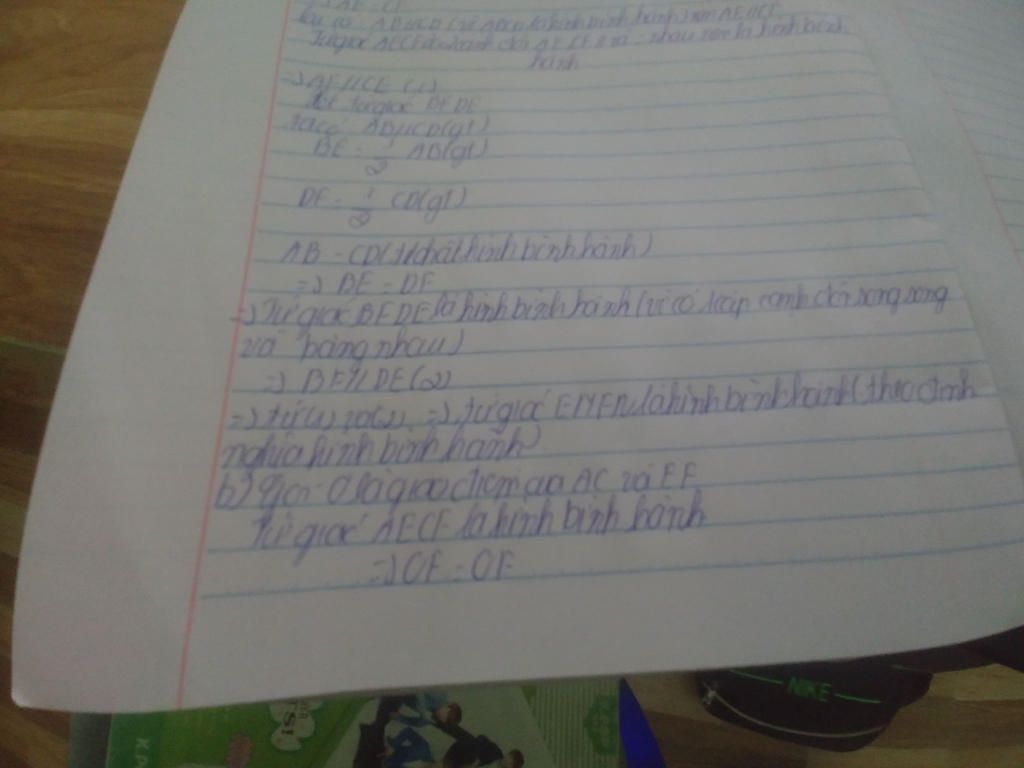 => AE = CF
Ta có AB//CD (vì ABCD là hình bình hành) nên AE//CF
Tứ giác AECF có cạnh đối AE, CF // và = nhau nên là hình bình
hành
=> AF//CE (1)
Xét tứ giác BFDE
ta có AB//CD(gt)
BE = 1/2 AB(gt)
DF = 1/2 CD(gt)
AB = CD(t/chất hình bình hành)
=> BE = DF
=> Tứ giác BFDE là hình bình hành (vì có 1 cặp cạnh đối song song
và bằng nhau)
=> BF//DE(2)
=> từ (1) và (2) => tứ giác EMFN là hình bình hành (theo định
nghĩa hình bình hành)
b) Gọi O là giao điểm của AC và EF
Tứ giác AECF là hình bình hành
=> OE = OF
NIKE